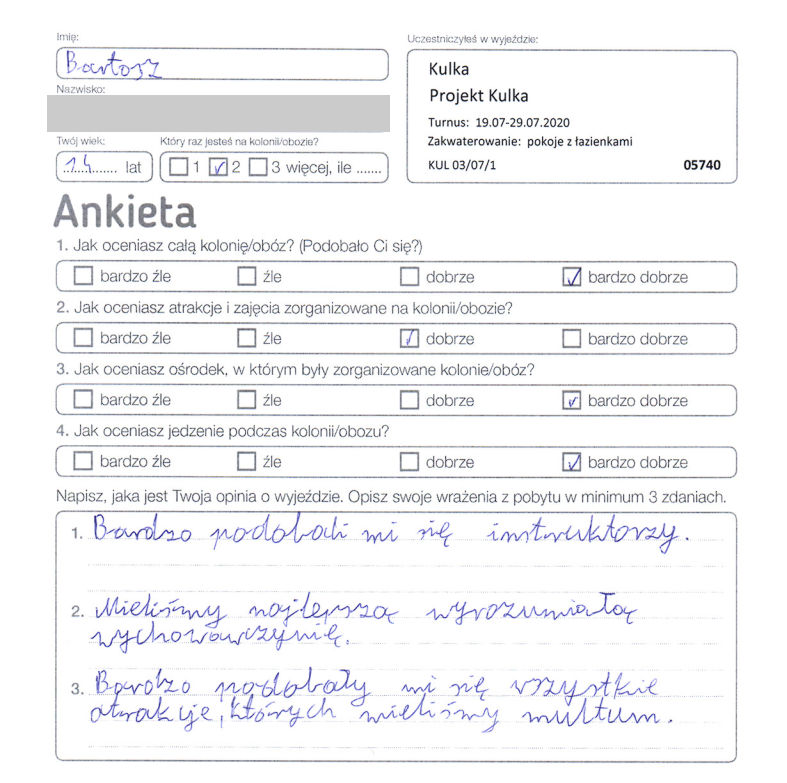 Imię:
Bartosz
Nazwisko:
Twój wiek:
14 lat
Który raz jesteś na kolonii/obozie?
1 2 3 więcej, ile .......
Uczestniczyłeś w wyjeździe:
Kulka
Projekt Kulka
Turnus: 19.07-29.07.2020
Zakwaterowanie: pokoje z łazienkami
KUL 03/07/1 05740
Ankieta
1. Jak oceniasz całą kolonię/obóz? (Podobało Ci się?)
bardzo źle źle dobrze bardzo dobrze
2. Jak oceniasz atrakcje i zajęcia zorganizowane na kolonii/obozie?
bardzo źle źle dobrze bardzo dobrze
3. Jak oceniasz ośrodek, w którym były zorganizowane kolonie/obóz?
bardzo źle źle dobrze bardzo dobrze
4. Jak oceniasz jedzenie podczas kolonii/obozu?
bardzo źle źle dobrze bardzo dobrze
Napisz, jaka jest Twoja opinia o wyjeździe. Opisz swoje wrażenia z pobytu w minimum 3 zdaniach.
1. Bardzo podobali mi się instruktorzy.
2. Mieliśmy najlepszą wyrozumiałą
wychowawczynię.
3. Bardzo podobały mi się wszystkie
atrakcje, których mieliśmy multum.